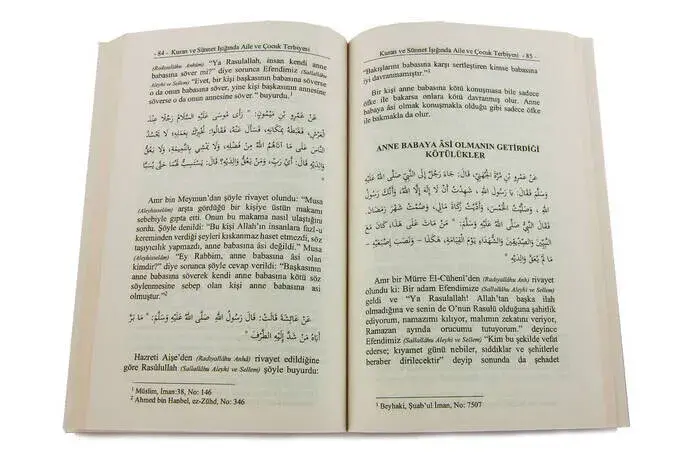 - 84 - Kuran ve Sünnet Işığında Aile ve Çocuk Terbiyesi
(Radıyallâhu Anhüm) “Ya Rasulallah, insan kendi anne
babasına söver mi?” diye sorunca Efendimiz (Sallallâhu
Aleyhi ve Sellem) “Evet, bir kişi başkasının babasına söverse
o da onun babasına söver, yine kişi başkasının annesine
söverse o da onun annesine söver.” buyurdu.1
عَنْ عَمْرِو بْنِ مَيْمُونٍ: " رَأَى مُوسَى عَلَيْهِ السَّلَامُ رَجُلًا عِنْدَ
الْعَرْشِ، فَغَبَطَهُ بِمَكَانِهِ، فَسَأَلَ عَنْهُ، فَقَالُوا: نُخْبِرُكَ بِعَمَلِهِ: لَا يَحْسُدُ
النَّاسَ عَلَى مَا آتَاهُمُ اللَّهُ مِنْ فَضْلِهِ، وَلَا يَمْشِي بِالنَّمِيمَةِ، وَلَا يَعُقُّ
وَالِدَيْهِ قَالَ: أَيْ رَبِّ، وَمَنْ يَعُقُّ وَالِدَيْهِ؟ قَالَ: يَسْتَسِبُّ لَهُمَا حَتَّى يُسَبَّا
"
Amr bin Meymun’dan şöyle rivayet olundu: “Musa
(Aleyhisselâm) arşta gördüğü bir kişiye üstün makamı
sebebiyle gıpta etti. Onun bu makama nasıl ulaştığını
sordu. Şöyle denildi: “Bu kişi Allah’ın insanlara fazl-u
kereminden verdiği şeyleri kıskanmaz haset etmezdi, söz
taşıyıcılık yapmazdı, anne babasına âsi değildi.” Musa
(Aleyhisselâm) “Ey Rabbim, anne babasına âsi olan
kimdir?” diye sorunca şöyle cevap verildi: “Başkasının
anne babasına söverek kendi anne babasına kötü söz
söylenmesine sebep olan kişi anne babasına asi
olmuştur.”2
عَنْ عَائِشَةَ قَالَتْ: قَالَ رَسُولُ اللَّهِ صَلَّى اللَّهُ عَلَيْهِ وَسَلَّمَ: " مَا بَرَّ
أَبَاهُ مَنْ شَدَّ إِلَيْهِ الطَّرْفَ "
Hazreti Aişe’den (Radıyallâhu Anhâ) rivayet edildiğine
göre Rasûlullah (Sallallâhu Aleyhi ve Sellem) şöyle buyurdu:
1 Müslim, İman:38, No: 146
2 Ahmed bin Hanbel, ez-Zühd, No: 346
Kuran ve Sünnet Işığında Aile ve Çocuk Terbiyesi - 85 -
“Bakışlarını babasına karşı sertleştiren kimse babasına
iyi davranmamıştır.”1
Bir kişi anne babasına kötü konuşmasa bile sadece
öfke ile bakarsa onlara kötü davranmış olur. Anne
babaya âsi olmak konuşmakla olduğu gibi sadece öfke
ile bakmakla da olur.
ANNE BABAYA ÂSİ OLMANIN GETİRDİĞİ
KÖTÜLÜKLER
عَنْ عَمْرِو بْنِ مُرَّةَ الْجُهَنِيِّ، قَالَ: جَاءَ رَجُلٌ إِلَى النَّبِيِّ صَلَّى اللَّهُ عَلَيْهِ
وَسَلَّمَ فَقَالَ: يَا رَسُولَ اللَّهِ ، شَهِدْتُ أَنْ لَا إِلَهَ إِلَّا اللَّهُ، وَأَنَّكَ رَسُولُ
اللَّهِ ، وَصَلَّيْتُ الْخَمْسَ، وَأَدَّيْتُ زَكَاةَ مَالِي، وَصُمْتُ شَهْرَ رَمَضَانَ،
فَقَالَ النَّبِيُّ صَلَّى اللَّهُ عَلَيْهِ وَسَلَّمَ: " مَنْ مَاتَ عَلَى هَذَا كَانَ مَعَ
النَّبِيِّينَ وَالصِّدِّيقِينَ وَالشُّهَدَاءِ يَوْمَ الْقِيَامَةِ، هَكَذَا - وَنَصَبَ إِصْبَعَيْهِ -
مَا لَمْ يَعُقَّ وَالِدَيْهِ "
Amr bir Mürre El-Cühenî’den (Radıyallâhu Anh) rivayet
olundu ki: Bir adam Efendimize (Sallallâhu Aleyhi ve Sellem)
geldi ve “Ya Rasulallah! Allah’tan başka ilah
olmadığına ve senin de O’nun Rasulü olduğuna şahitlik
ediyorum, namazımı kılıyor, malımın zekatını veriyor,
Ramazan ayında orucumu tutuyorum.” deyince
Efendimiz (Sallallâhu Aleyhi ve Sellem) “Kim bu şekilde vefat
ederse; kıyamet günü nebiler, sıddıklar ve şehitlerle
beraber dirilecektir” deyip sonunda da şehadet
1 Beyhaki, Şuab’ul İman, No: 7507